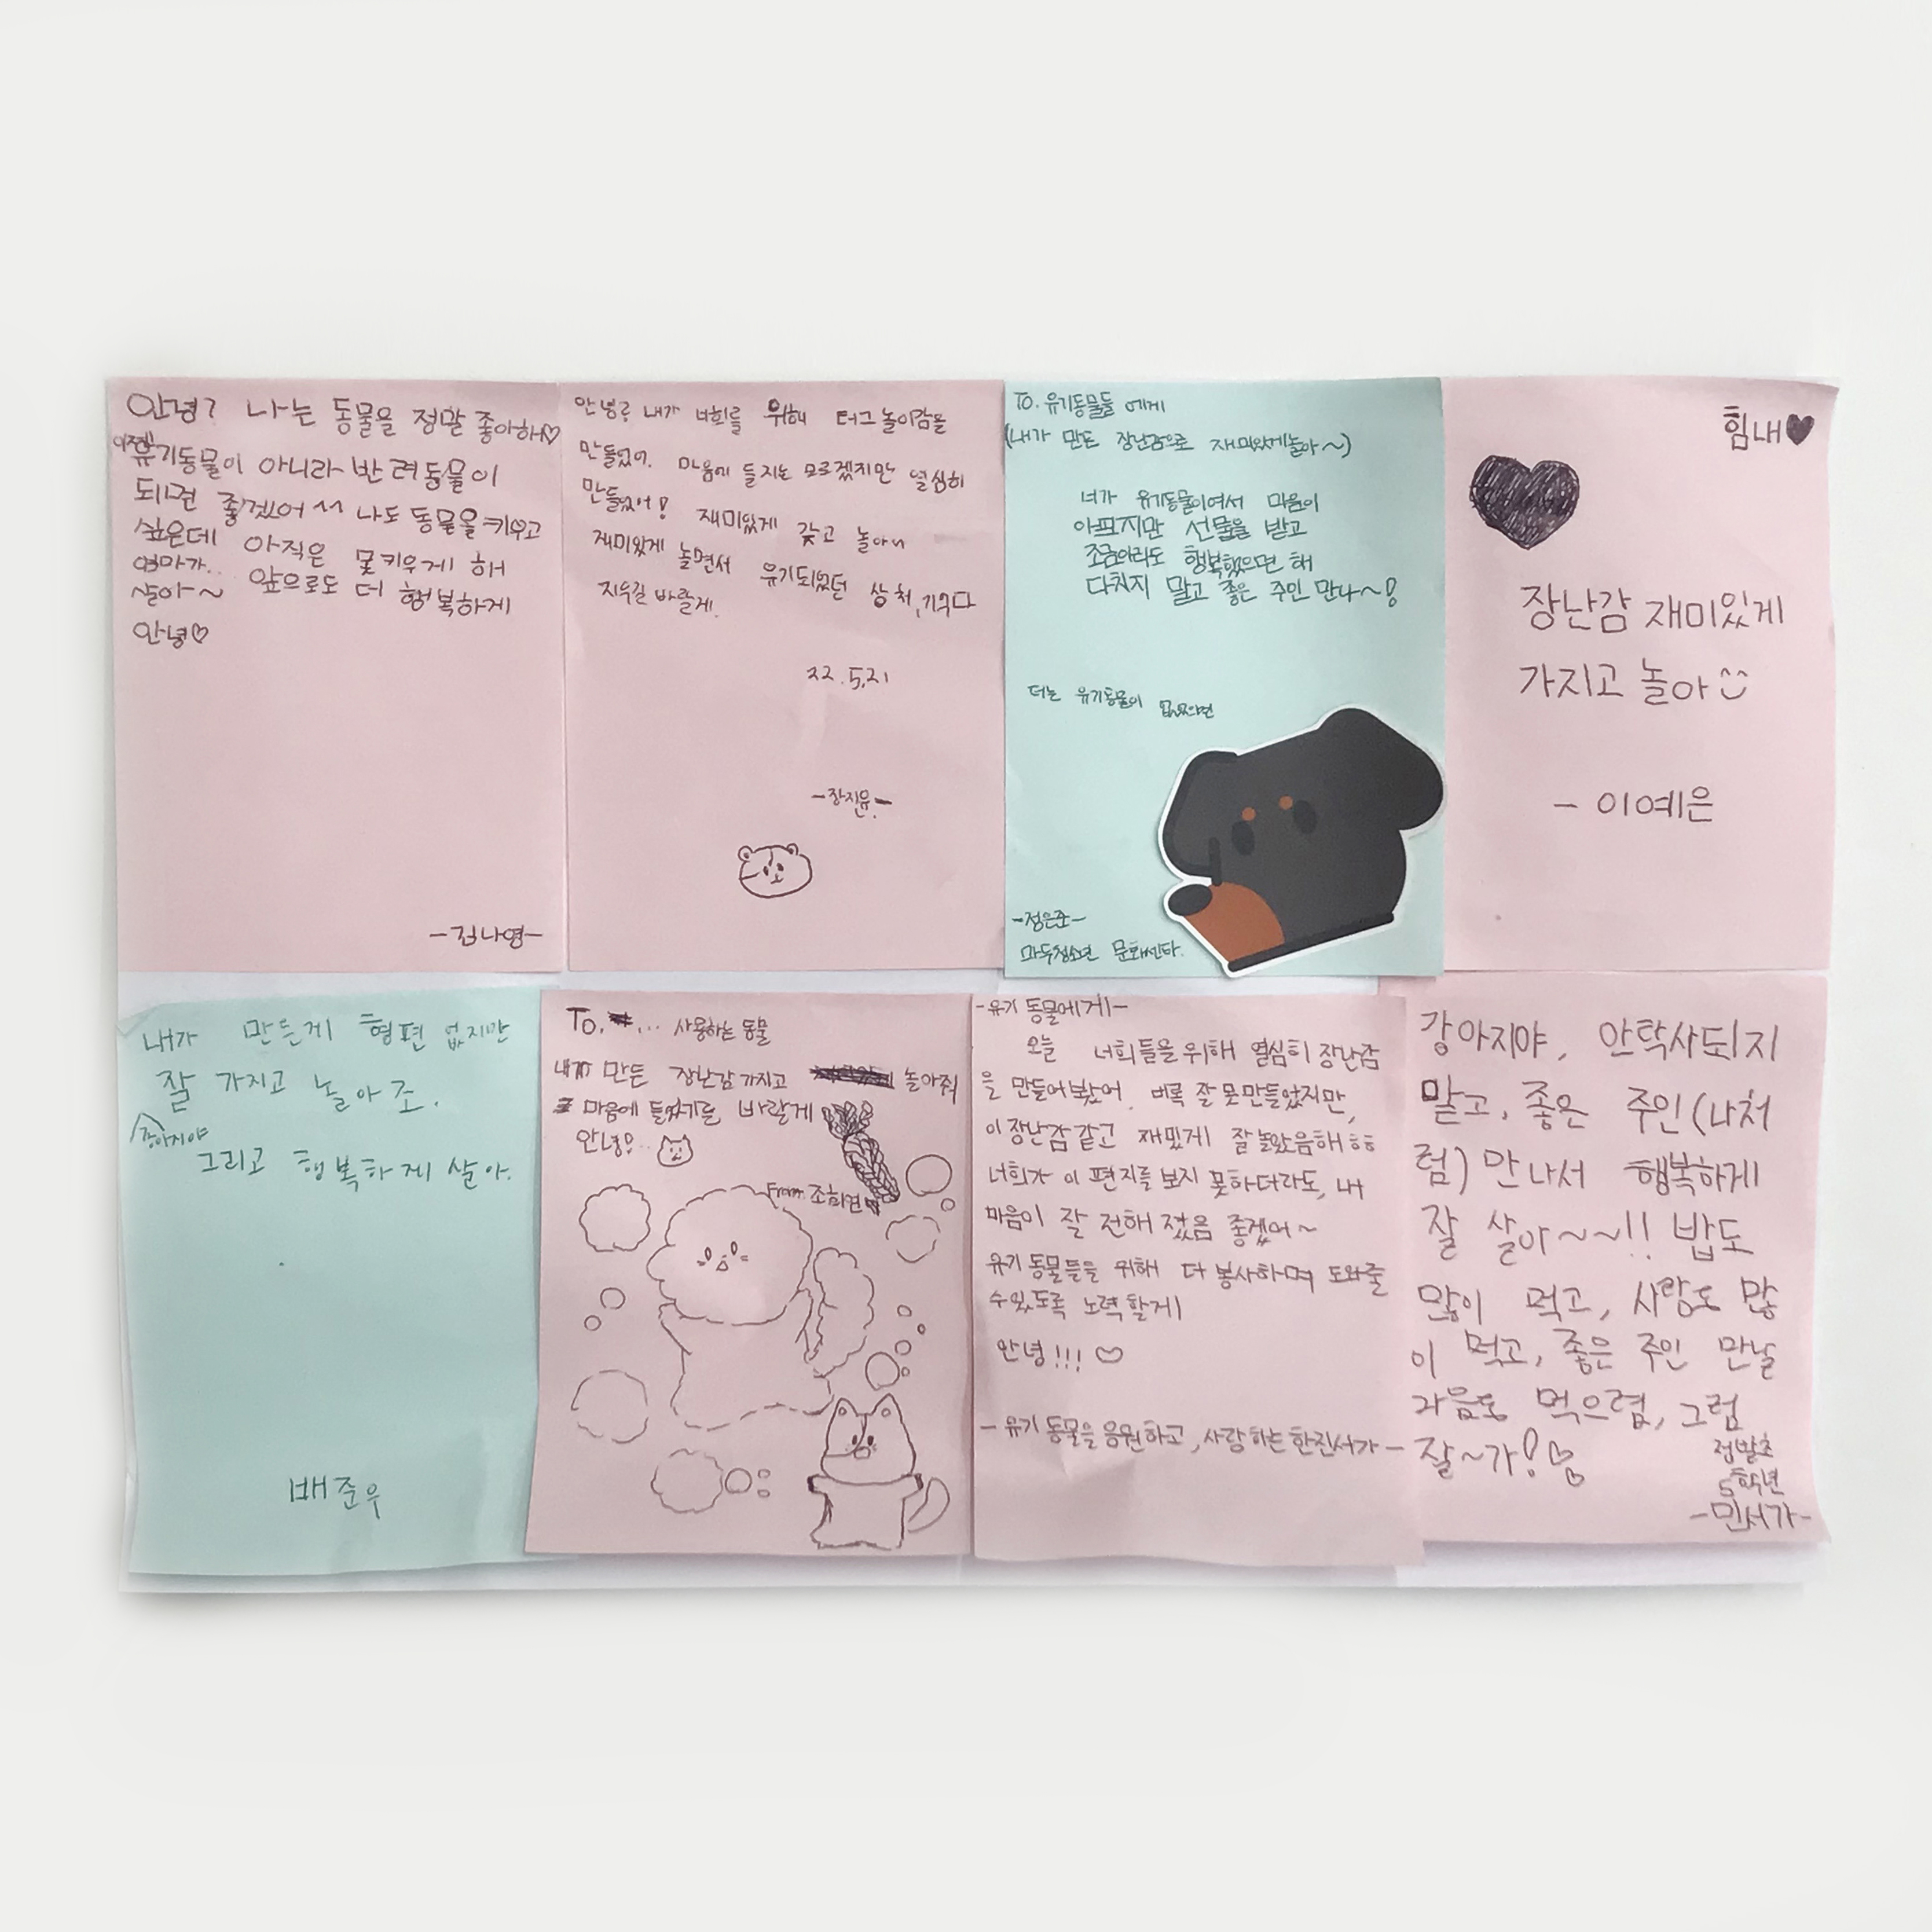 안녕? 나는 동물을 정말 좋아해♡
이젠 유기동물이 아니라 반려동물이
되면 좋겠어 ^^ 나도 동물을 키우고
싶은데 아직은 못키우게 해
엄마가.. 앞으로도 더 행복하게
살아~
안녕♡
-김나영-
안녕? 내가 너희를 위해 터그놀이감을
만들었어. 마음에 들지는 모르겠지만 열심히
만들었어! 재미있게 갖고 놀아
재미있게 놀면서 유기되었던 상처, 기억다
지우길 바랄게.
22.5.21
-장지윤-
To. 유기동물들 에게
(내가 만든 장난감으로 재미있게놀아~)
너가 유기동물이여서 마음이
아프지만 선물을 받고
조금이라도 행복했으면 해
다치지 말고 좋은 주인 만나~!
더는 유기동물이 없었으면
-정은준-
마두청소년 문화센타.
힘내♥
장난감 재미있게
가지고 놀아
- 이예은
내가 만든게 형편 없지만
잘 가지고 놀아조.
강아지야
그리고 행복하게 살아.
배준우
To. ... 사용하는 동물
내가 만든 장난감 가지고 놀아줘
마음에 들었기를 바랄게
안녕
From 조희연
-유기 동물에게-
오늘 너희들을 위해 열심히 장난감
을 만들어봤어. 비록 잘 못 만들었지만,
이 장난감 같고 재밌게 잘 놀았음해 ㅎㅎ
너희가 이 편지를 보지 못하더라도, 내
마음이 잘 전해 졌음 좋겠어~
유기 동물들을 위해 더 봉사하며 도와줄
수있도록 노력할게
안녕!!! ♡
- 유기 동물을 응원하고, 사랑하는 한진서가 -
강아지야, 안락사되지
말고, 좋은 주인(나처
럼) 만나서 행복하게
잘 살아~~!! 밥도
많이 먹고, 사랑도 많
이 먹고, 좋은 주인 만날
마음도 먹으렴, 그럼
잘~가! ♡
정발초
5학년
-민서가-